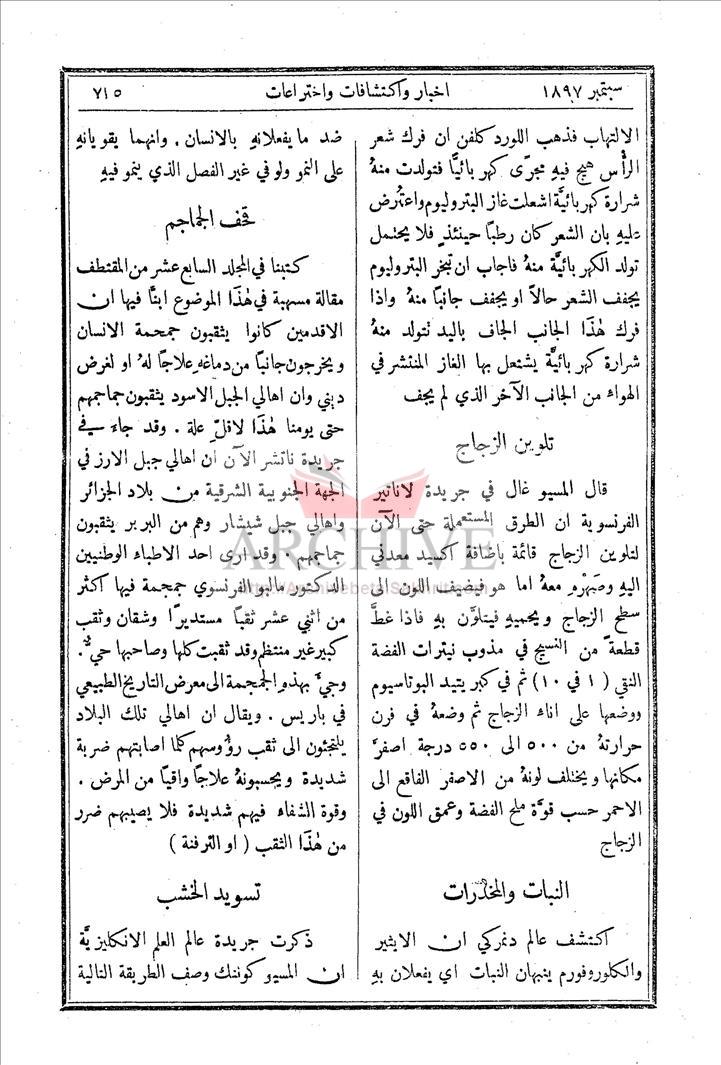 سبتمبر ١٨٩٧
اخبار واكتشافات واختراعات
٧١٥
الالتهاب فذهب اللورد كلفن ان فرك شعر
الرأس هيج فيهِ مجرًى كهربائيًّا فتولدت منهُ
شرارة كهربائيَّة اشعلت غاز البتروليوم واعتُرض
عليهِ بان الشعر كان رطبًا حينئذٍ فلا يحتمل
تولد الكهربائيَّة منهُ فاجاب ان تبخر البتروليوم
يجفف الشعر حالاً او يجفف جانبًا منهُ واذا
فرك هٰذا الجانب الجاف باليد تتولد منهُ
شرارة كهربائيَّة يشتعل بها الغاز المنتشر في
الهواء من الجانب الآخر الذي لم يجف
تلوين الزجاج
قال المسيو غال في جريدة لاناتير
الفرنسوية ان الطرق المستعملة حتى الآن
لتلوين الزجاج قائمة باضافة اكسيد معدني
اليهِ وصَهْرِهِ معهُ اما هو فيضيف اللون الى
سطح الزجاج ويحميهِ فيتلوَّن بهِ فاذا غطَّ
قطعةً من النسيج في مذوب نيترات الفضة
النقي (١ في ١٠) ثم في كبريتيد البوتاسيوم
ووضعها على اناء الزجاج ثم وضعهُ في فرن
حرارتهُ من ٥٠٠ الى ٥٥٠ درجة اصفرَّ
مكانها ويختلف لونهُ من الاصفر الفاقع الى
الاحمر حسب قوَّة ملح الفضة وعمق اللون في
الزجاج
النبات والمخدّرات
اكتشف عالم دنمركي ان الايثير
والكلوروفورم ينبهان النبات اي يفعلان بهِ
ضد ما يفعلانهِ بالانسان . وانهما يقويانهِ
على النمو ولو في غير الفصل الذي ينمو فيهِ
قحف الجماجم
كتبنا في المجلد السابع عشر من المقتطف
مقالة مسهبة في هٰذا الموضوع ابنَّا فيها ان
الاقدمين كانوا يثقبون جمجمة الانسان
ويخرجون جانبًا من دماغهِ علاجًا لهُ او لغرض
ديني وان اهالي الجبل الاسود يثقبون جماجمهم
حتى يومنا هٰذا لاقلّ علة . وقد جاء في
جريدة ناتشر الآن ان اهالي جبل الارز في
الجهة الجنوبية الشرقية من بلاد الجزائر
واهالي جبل ششار وهم من البربر يثقبون
جماجمهم . وقد ارى احد الاطباء الوطنيين
الدكتور مالبو الفرنسوي جمجمة فيها اكثر
من اثني عشر ثقبًا مستديرًا وشقان وثقب
كبير غير منتظم وقد ثقبت كلها وصاحبها حيٌّ .
وجيءَ بهذهِ الجمجمة الى معرض التاريخ الطبيعي
في باريس . ويقال ان اهالي تلك البلاد
يلتجئون الى ثقب رؤوسهم كلما اصابتهم ضربة
شديدة ويحسبونهُ علاجًا واقيًا من المرض .
وقوة الشفاء فيهم شديدة فلا يصيبهم ضرر
من هٰذا الثقب (او الترفنة)
تسويد الخشب
ذكرت جريدة عالم العلم الانكليزيَّة
ان المسيو كوننك وصف الطريقة التالية
ARCHIVE